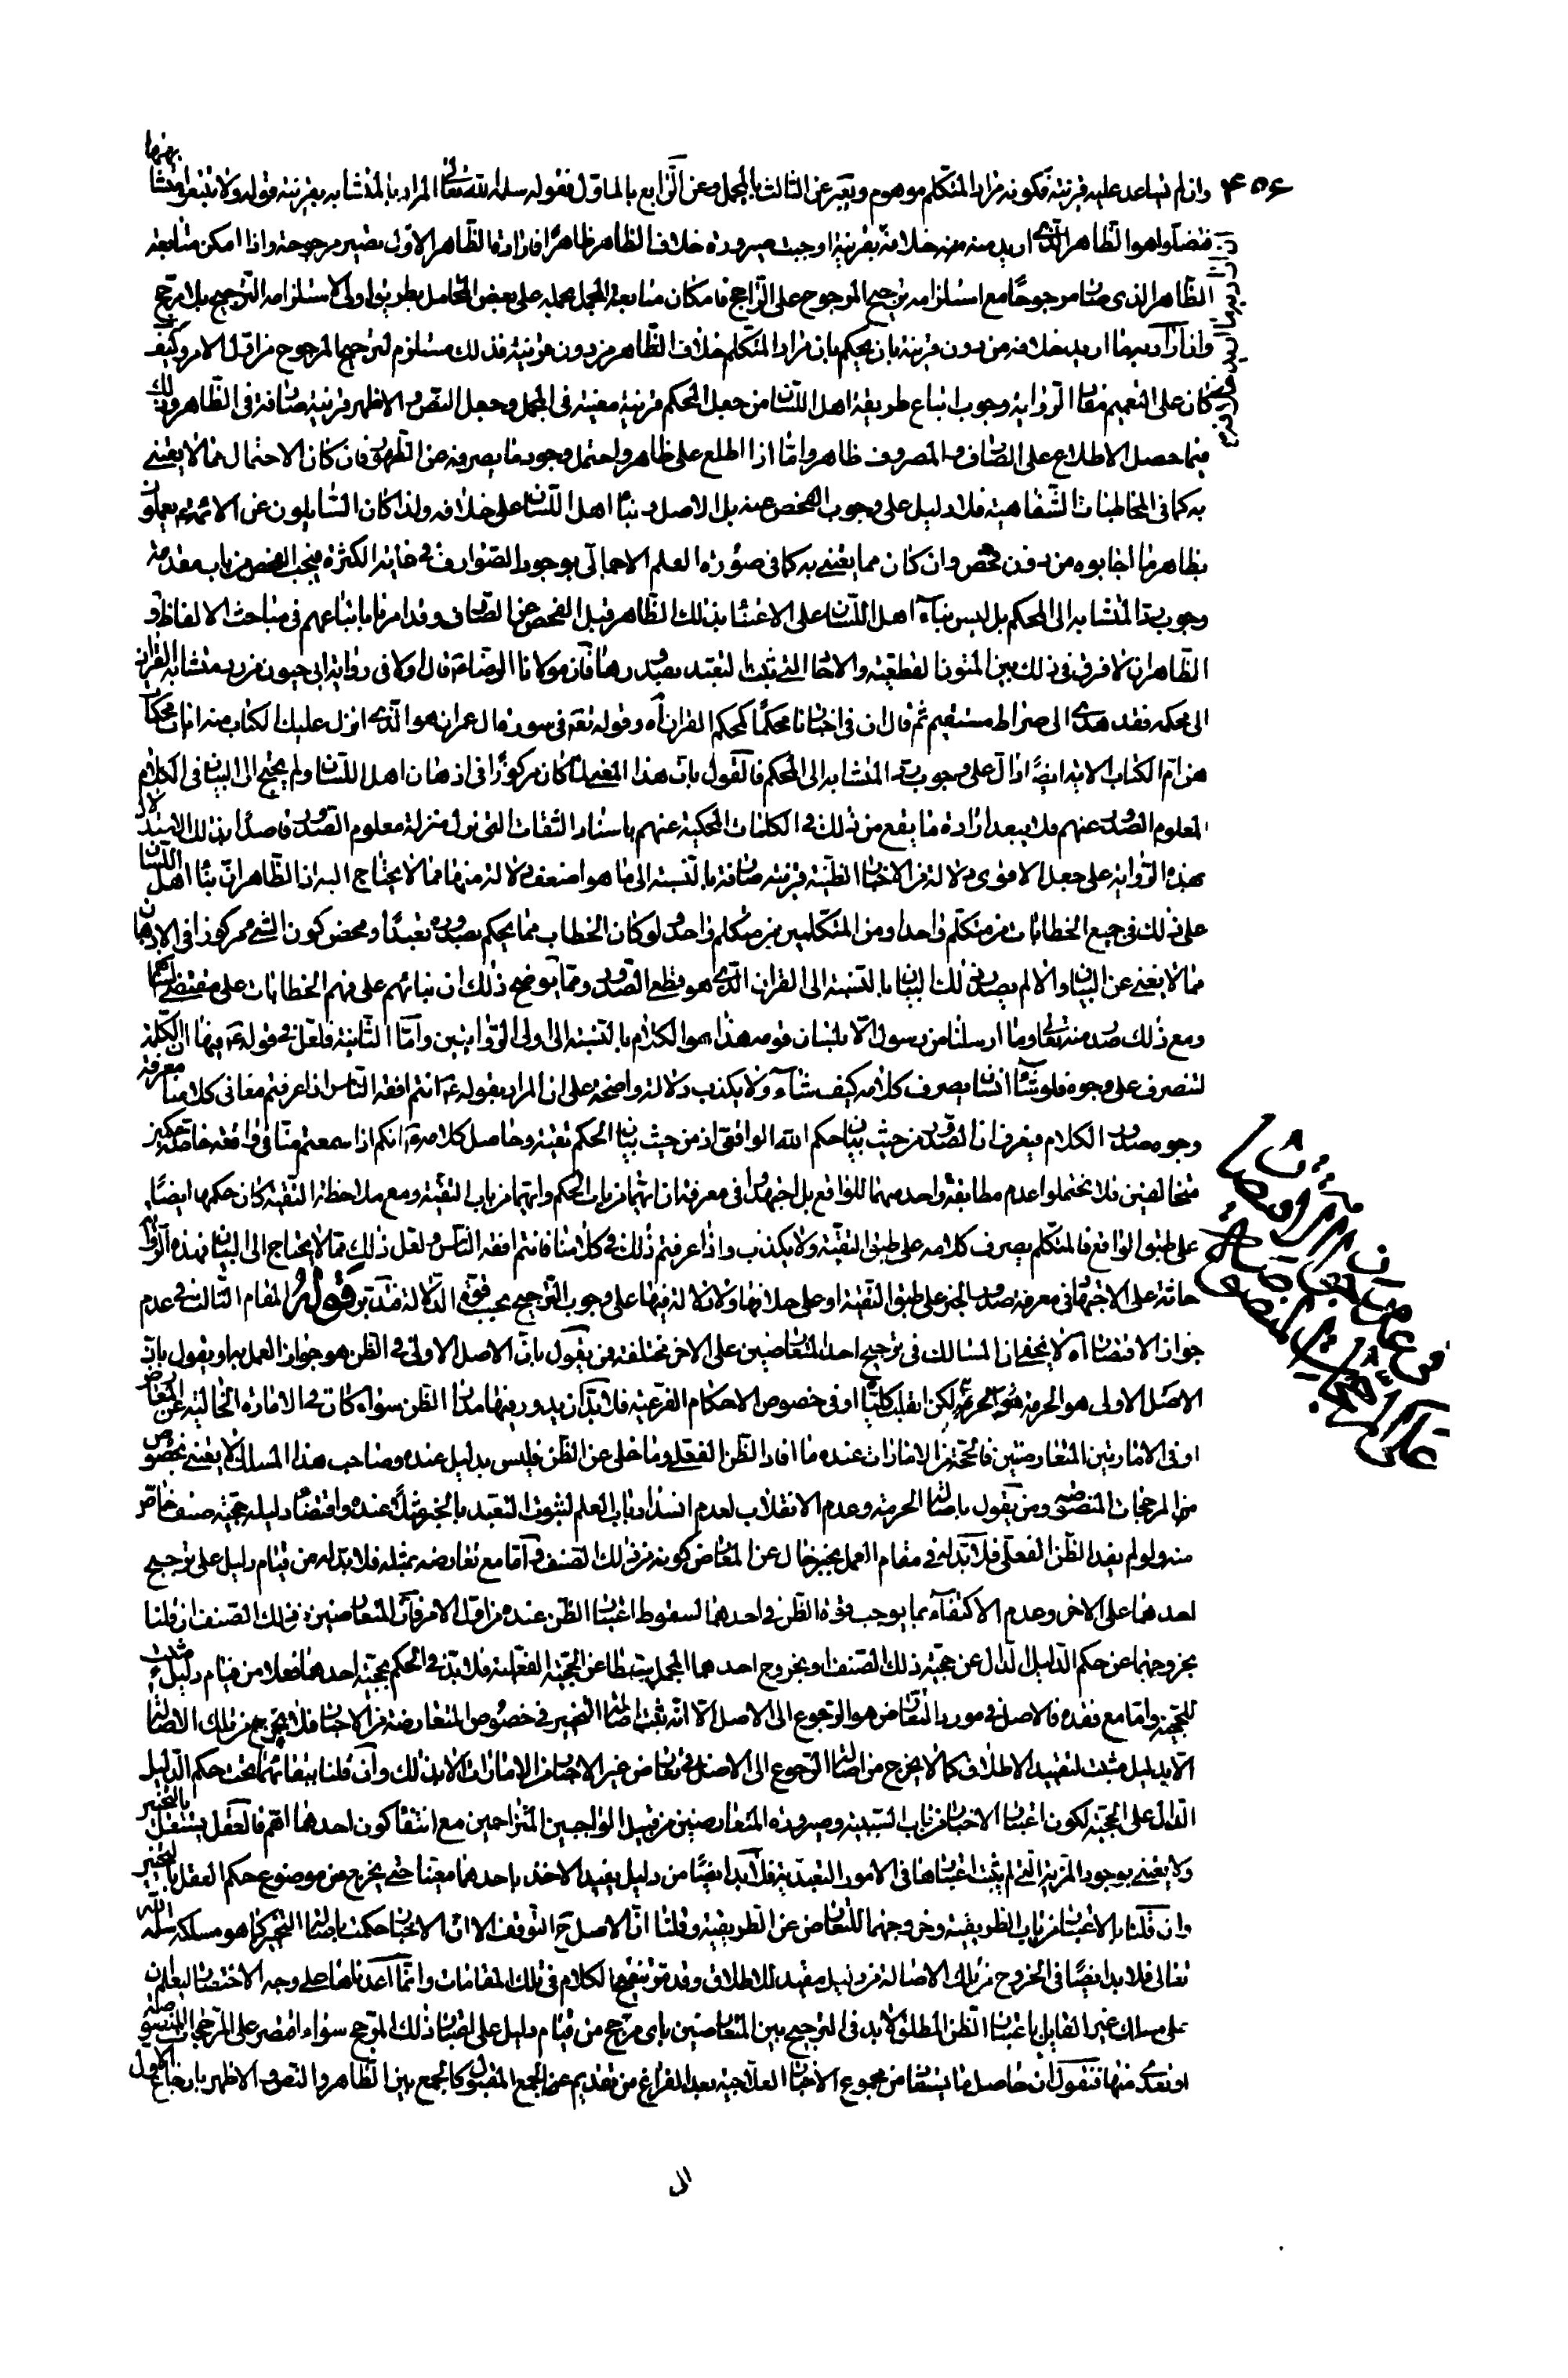 ۴۵۶
وان لم تساعد عليه قرينة فكونه مراد المتكلم موهوم ويعبر عن الثالث بالمجمل وعن الرابع بالماوّل فقوله سلمه الله تعالى المراد بالمتشابه بقرينة قوله ولا تتبعوا متشابهها
فتضلوا هو الظاهر الذى اريد منه خلافه بقرينة اوجبت صيرورة خلاف الظاهر ظاهرا فارادة الظاهر الاول تصير مرجوحة واذا امكن متابعة
الظاهر الذى صار مرجوحًا مع استلزامه ترجيح المرجوح على الراجح فامكان متابعة المجمل بحمله على بعض المحامل بطريق اولى لاستلزامه الترجيح بلا مرجح
وان اراد بهما اريد خلافه من دون قرينة بان يحكم بان مراد المتكلم خلاف الظاهر من دون قرينة فذلك مستلزم لترجيح المرجوح من اول الامر وكيف
كان على التعميم مفاد الرواية وجوب اتباع طريقة اهل اللسان من جعل المحكم قرينة معينة فى المجمل وجعل النص والاظهر قرينة صارفة فى الظاهر وذلك
فيما حصل الاطلاع على الصارف والمصروف ظاهر وامّا اذا اطلع على ظاهر واحتمل وجود ما يصرفه عن الظهور فان كان الاحتمال مما لا يعتنى
به كما فى المخاطبات الشفاهية فلا دليل على وجوب الفحص عنه بل الاصل وبناء اهل اللسان على خلافه ولذا كان السائلون عن الائمة ع يعملون
بظاهر ما اجابوه من دون فحص وان كان مما يعتنى به كما فى صورة العلم الاجمالى بوجود الصوارف فى غاية الكثرة فيجب الفحص من باب مقدمة
وجوب رد المتشابه الى المحكم بل ليس بناء اهل اللسان على الاعتناء بذلك الظاهر قبل الفحص عن الصارف وقد امرنا باتباعهم فى مباحث الالفاظ و
الظاهر ان لا فرق فى ذلك بين المتون القطعية والاخبار التى ثبت التعبد بصدورها فان مولانا الرضا ع قال اولا فى رواية ابى حيون من رد متشابه القران
الى محكمه فقد هدى الى صراط مستقيم ثم قال ان فى اخبارنا محكمًا كمحكم القران آه وقوله تعه فى سورة ال عمران هو الذى انزل عليك الكتاب منه ايات محكمات
هن ام الكتاب الاية ايضا دالّ على وجوب رد المتشابه الى المحكم فالقول بان هذا المعنى لما كان مركوزا فى اذهان اهل اللسان ولم يحتج الى البيان فى الكلام
المعلوم الصدور عنهم فلا يبعد ارادة ما يقع من ذلك فى الكلمات المحكية عنهم باسناد الثقات التى نزل منزلة معلوم الصدور قاصدا بذلك الاستدلال
بهذه الرواية على جعل الاقوى دلالة من الاخبار الظنية قرينة صارفة بالنسبة الى ما هو اضعف دلالة منها مما لا يحتاج اليه اذ الظاهر ان بناء اهل اللسان
على ذلك فى جميع الخطابات من متكلم واحد او من المتكلمين بمنزلة متكلم واحد ولو كان الخطاب مما يحكم بصدوره تعبدًا ومحض كون الشئ مركوزا فى الاذهان
مما لا يغنى عن البيان والا لم يصدر ذلك البيان بالنسبة الى القران الذى هو قطعى الصدور ومما يوضح ذلك ان بنائهم على فهم الخطابات على مقتضى لسانهم
ومع ذلك صدر منه تعالى وما ارسلنا من رسول الّا بلسان قومه هذا هو الكلام بالنسبة الى اولى الروايتين وامّا الثانية فلعل فى قوله ع فيها ان الكلمة
لتنصرف على وجوه فلو شاء انسان لصرف كلامه كيف شاء ولا يكذب دلالة واضحة على ان المراد بقوله ع انتم افقه الناس اذا عرفتم معانى كلامنا معرفة
وجوه صدور الكلام فيعرف ان الصدور من حيث بيان حكم الله الواقعى او من حيث بيان الحكم تقية وحاصل كلامه ع انكم اذا سمعتم منّا فى واقعة خاصة حكمين
متخالفين فلا تحتملوا عدم مطابقة واحد منهما للواقع بل اجتهدوا فى معرفة ان ايهما من باب الحكم وايهما من باب التقية ومع ملاحظة التقية كان حكمها ايضًا
على طبق الواقع فالمتكلم يصرف كلامه على طبق التقية ولا يكذب واذا عرفتم ذلك فى كلامنا فانتم افقه الناس ولعل ذلك مما لا يحتاج الى البيان فهذه الرواية
حاثة على الاجتهاد فى معرفة صدور الخبر على طبق التقية او على خلافها ولا دلالة فيها على وجوب الترجيح بحسب قوة الدلالة فتدبر قوله المقام الثالث فى عدم
جواز الاقتصار اه لا يخفى ان المسالك فى ترجيح احد المتعارضين على الاخر مختلفة فمن يقول بان الاصل الاولى فى الظن هو جواز العمل به او يقول بان
الاصل الاولى هو الحرمة لكن انقلب كليا او فى خصوص الاحكام الفرعية فلا بد ان يدور فيها مدار الظن سواء كان فى الامارة الخالية عن المعارض
او فى الامارتين المتعارضتين فالحجة من الامارات عنده ما افاد الظن الفعلى وما خلى عن الظن فليس بدليل عنده وصاحب هذا المسلك لا يعتنى بخصوص
من المرجحات المنصوصة ومن يقول باصالة الحرمة وعدم الانقلاب لعدم انسداد باب العلم لثبوت التعبد بالخبر عنده واقتضاء دليله حجية صنف خاص
منه ولو لم يفد الظن الفعلى فلا بد له فى مقام العمل بخبر خال عن المعارض كونه من ذلك الصنف وامّا مع تعارضه بمثله فلا بد له من قيام دليل على ترجيح
احدهما على الاخر وعدم الاكتفاء بما يوجب قوة الظن فى احدهما لسقوط اعتبار الظن عنده من اول الامر فان المتعارضين من ذلك الصنف ان قلنا
بخروجهما عن حكم الدليل الدال عن حجية ذلك الصنف او بخروج احدهما المجمل عن الحجية الفعلية فلا بد فى الحكم بحجية احدهما فعلا من قيام دليل مثبت
للحجية وامّا مع فقده فالاصل فى مورد التعارض هو الرجوع الى الاصل الّا انّه ثبت اصالة التخيير فى خصوص المتعارضة من الاخبار فلا يخرج من تلك الاصالة
الّا بدليل مثبت لتقييد الاطلاق كما لا يخرج من اصالة الرجوع الى الاصل فى تعارض غير الاخبار من الامارات الا بذلك وان قلنا ببقائهما تحت حكم الدليل
الدال على الحجية لكون اعتبار الاخبار من باب السببية وصيرورة المتعارضين من قبيل الواجبين المتزاحمين مع انتفاء كون احدهما اهم فالعقل يستقل بالتخيير
ولا يعتنى بوجود المزية التى لم يثبت اعتبارها فى الامور التعبدية فلا بد ايضًا من دليل يفيد الاخذ باحدهما معينا حتى يخرج عن موضوع حكم العقل بالتخيير
وان قلنا بالاعتبار من باب الطريقية وخروجهما للتعارض عن الطريقية وقلنا انّ الاصل ح التوقف الا انّ الاخبار حكمت باصالة التخيير كما هو مسلكه سلمه الله
تعالى فلا بد ايضًا فى الخروج من تلك الاصالة من دليل مقيد للاطلاق وقد مرّ تنقيح الكلام فى تلك المقامات وانّما اعدناها على وجه الاختصار ليعلم ان
على مسلك غير القايل باعتبار الظن المطلق لا بد فى الترجيح بين المتعارضين باى مرجح من قيام دليل على اعتبار ذلك المرجح سواء اقتصر على المرجحات المنصوصة
او تعدى منها فنقول ان حاصل ما يستفاد من مجموع الاخبار العلاجية بعد الفراغ من تقديم الجمع المقبول كالجمع بين الظاهر والنص والاظهر بارجاع الاول
الى
فى عدم جواز الاقتصار
على المرجحات المنصوصة